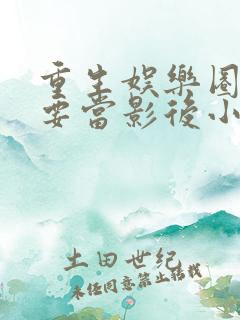 重生娛樂圈
要當影後小
土田世纪
未经同意禁止转载